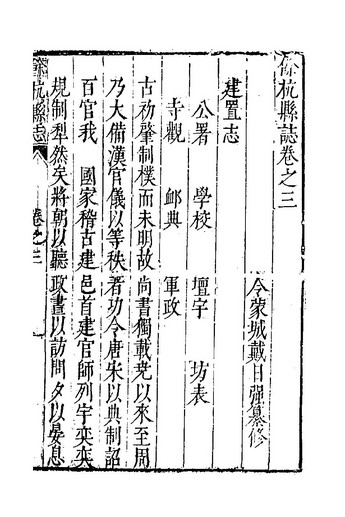 餘杭縣誌卷之三
令蒙城戴日強纂修
建置志
公署 學校 壇宇 坊表
寺觀 邮典 軍政
古初肇制樸而未明故尚書獨載堯以來至周
乃大備漢官儀以等秩著功令唐宋以典制詔
百官我 國家稽古建邑首建官師列宇奕奕
規制犁然矣將朝以聽政晝以訪問夕以晏息
餘杭縣志
卷之三